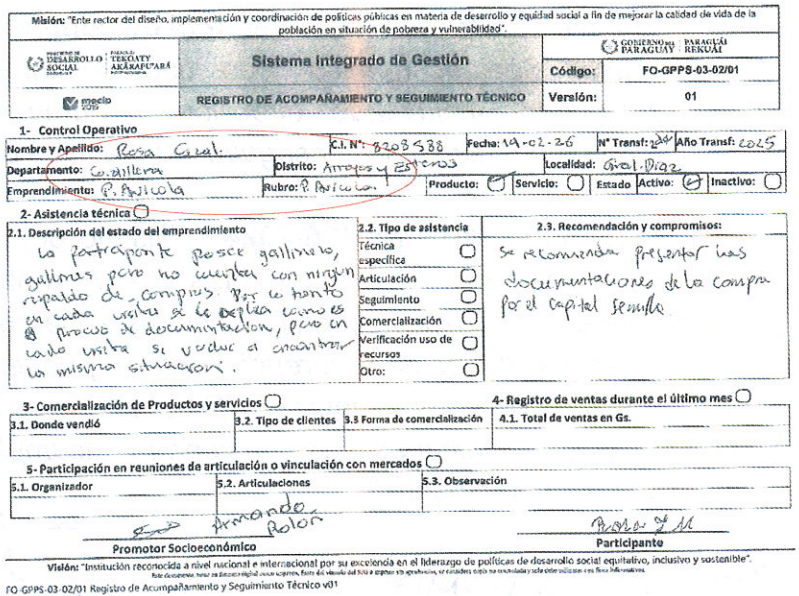 Misión: "Ente rector del diseño, implementación y coordinación de políticas públicas en materia de desarrollo y equidad social a fin de mejorar la calidad de vida de la
población en situación de pobreza y vulnerabilidad".
DESARROLLO SOCIAL TEKOATY AKÃRAPU'ARÃ
Sistema Integrado de Gestión
GOBIERNO DEL PARAGUAY PARAGUÁI REKUÁI
Código: FO-GPPS-03-02/01
mecip 2015
REGISTRO DE ACOMPAÑAMIENTO Y SEGUIMIENTO TÉCNICO
Versión: 01
1- Control Operativo
Nombre y Apellido: Rosa C.I. N°: Fecha: 19-02-26 N° Transf: Año Transf: 2025
Departamento: Cordillera Distrito: Arroyos y Esteros Localidad: Gral. Diaz
Emprendimiento: P. Avicola Rubro: P. Avicola. Producto: Servicio: Estado Activo: Inactivo:
2- Asistencia técnica
2.1. Descripción del estado del emprendimiento
2.2. Tipo de asistencia
2.3. Recomendación y compromisos:
La participante posee gallinero,
gallinas pero no cuenta con ningun
respaldo de compras. Por lo tanto
en cada visita se le explica como es
el proceso de documentacion, pero en
cada visita se vuelve a encontrar
la misma situacion.
Técnica específica
Articulación
Seguimiento
Comercialización
Verificación uso de recursos
Otro:
Se recomienda presentar las
documentaciones de la compra
por el capital semilla
3- Comercialización de Productos y servicios
4- Registro de ventas durante el último mes
3.1. Donde vendió 3.2. Tipo de clientes 3.3 Forma de comercialización 4.1. Total de ventas en Gs.
5- Participación en reuniones de articulación o vinculación con mercados
5.1. Organizador 5.2. Articulaciones 5.3. Observación
Armando
Rolon
Promotor Socioeconómico
Participante
Visión: "Institución reconocida a nivel nacional e internacional por su excelencia en el liderazgo de políticas de desarrollo social equitativo, inclusivo y sostenible".
FO-GPPS-03-02/01 Registro de Acompañamiento y Seguimiento Técnico v01